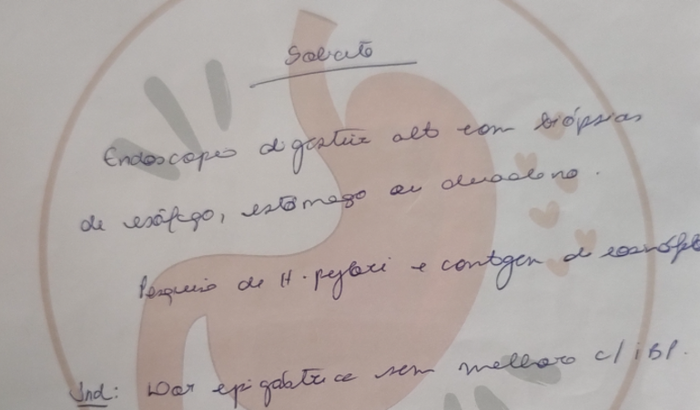 Solicito
Endoscopia digestiva alta com biópsias
de esôfago, estômago ou duodeno.
Pesquisa de H. pylori e contagem de eosinófil
Ind: Dor epigástrica sem melhora c/ IBP.